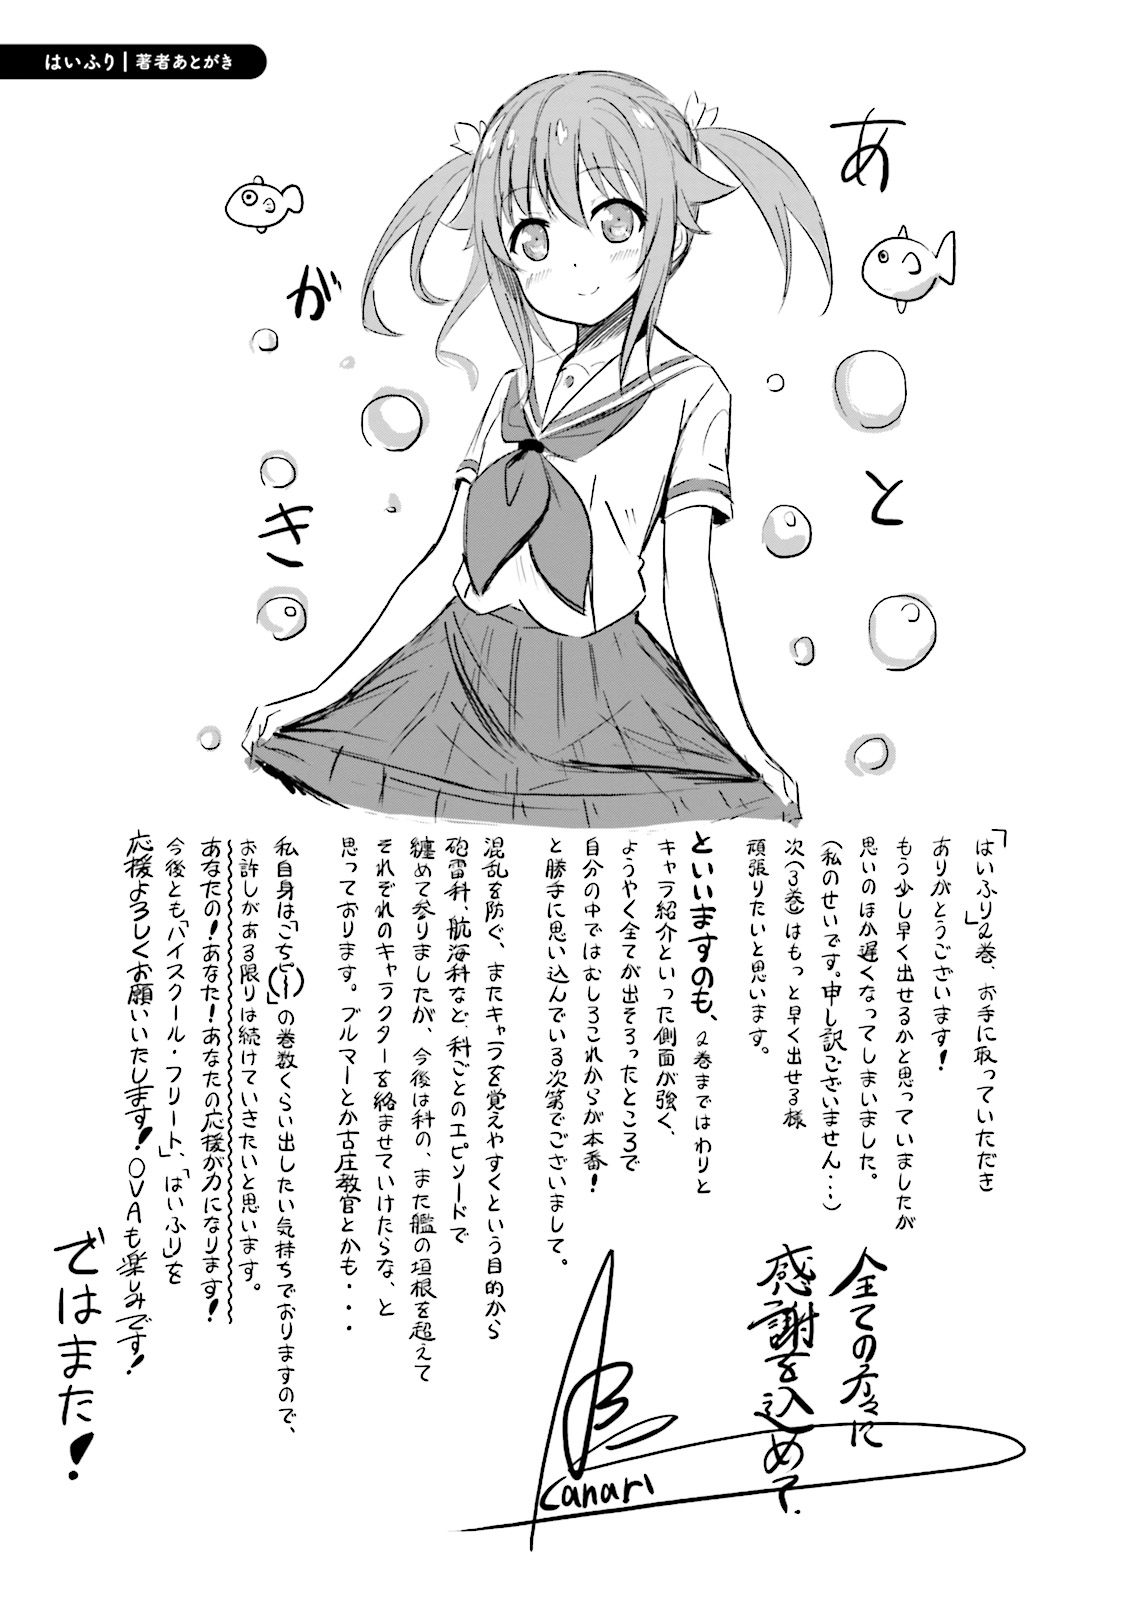 はいふり|著者あとがき
あとがき
「はいふり」2巻、お手に取っていただき
ありがとうございます!
もう少し早く出せるかと思っていましたが
思いのほか遅くなってしまいました。
(私のせいです。申し訳ございません・・・)
次(3巻)はもっと早く出せる様
頑張りたいと思います。
といいますのも、2巻まではわりと
キャラ紹介といった側面が強く、
ようやく全てが出そろったところで
自分の中ではむしろこれからが本番!
と勝手に思い込んでいる次第でございまして。
混乱を防ぐ、またキャラを覚えやすくという目的から
砲雷科、航海科など、科ごとのエピソードで
纏めて参りましたが、今後は科の、また艦の垣根を超えて
それぞれのキャラクターを絡ませていけたらな、と
思っております。ブルマーとか古庄教官とかも・・・
私自身は「こちピー(〜)」の巻数くらい出したい気持ちでおりますので、
お許しがある限りは続けていきたいと思います。
あなたの!あなた!あなたの応援が力になります!
今後とも「ハイスクール・フリート」、「はいふり」を
応援よろしくお願いいたします!OVAも楽しみです!
ではまた!
全ての方々に
感謝を込めて.
canari